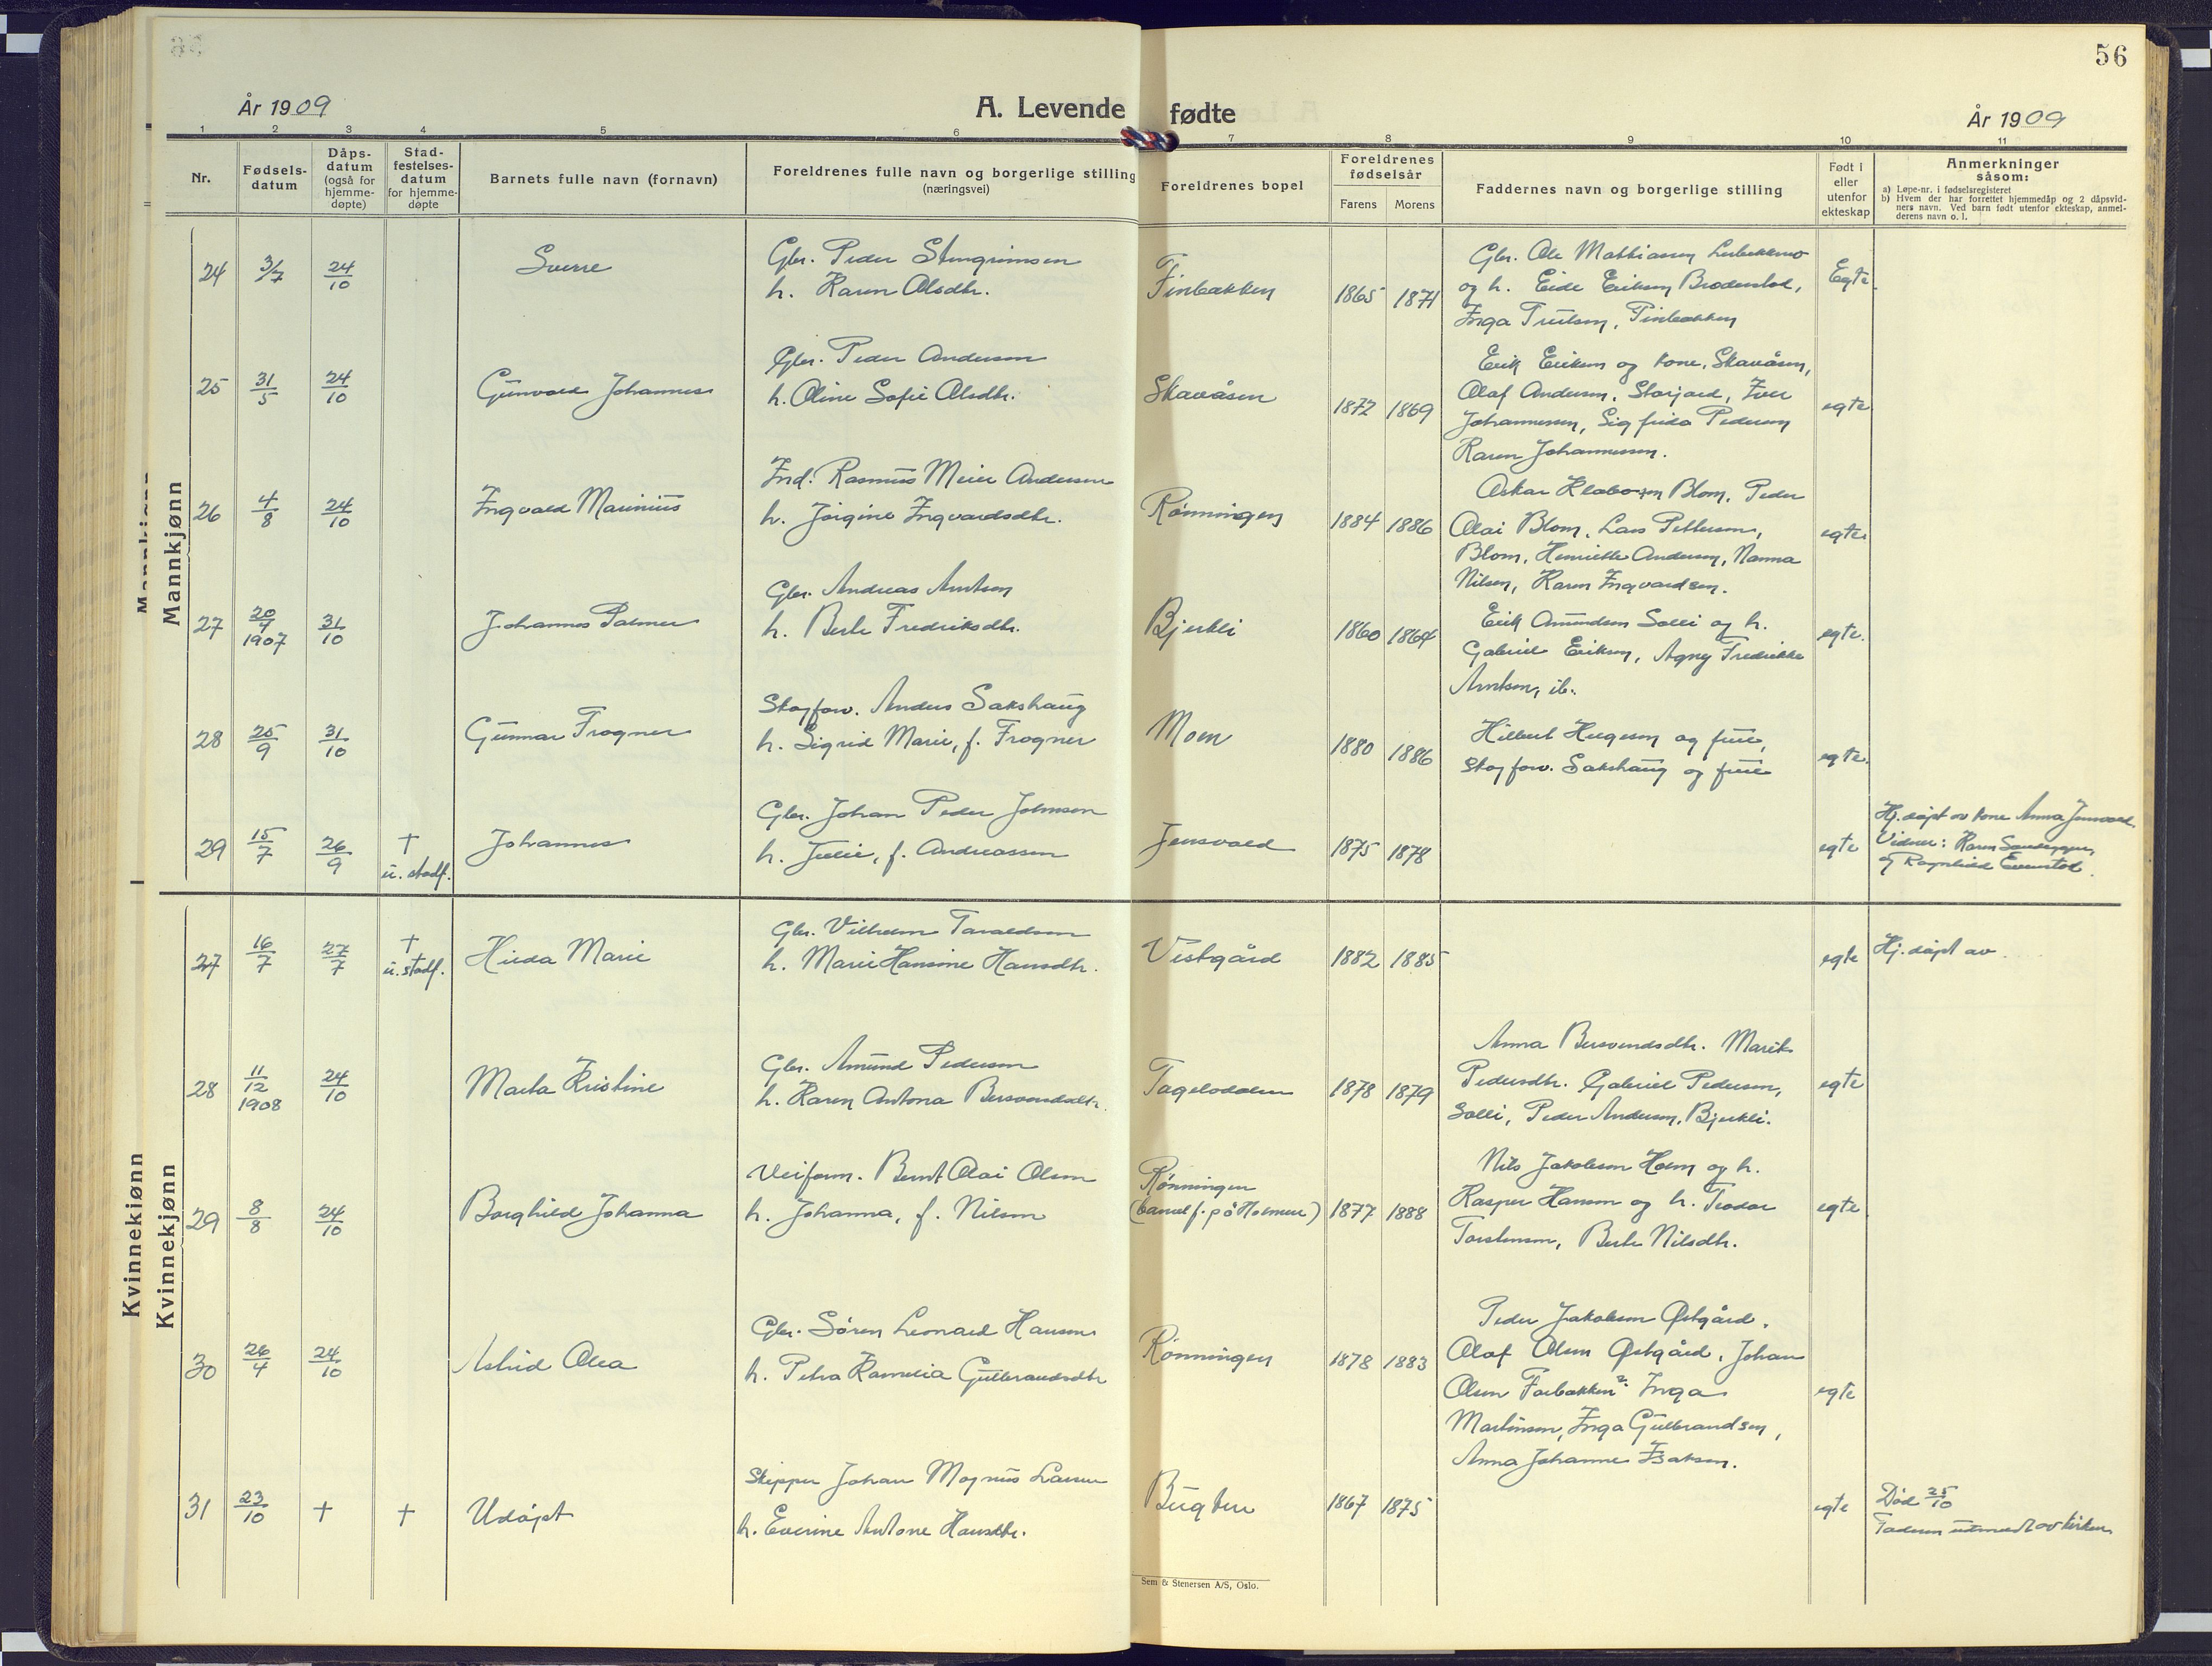 56
År 1909
A. Levende fødte
År 1909
1 2 3 4 5 6 7 8 9 10 11
Nr.
Fødsels-
datum
Dåps-
datum
(også for
hjemme-
døpte)
Stad-
festelses-
datum
for hjemme-
døpte
Barnets fulle navn (fornavn)
Foreldrenes fulle navn og borgerlige stilling
(næringsvei)
Foreldrenes bopel
Foreldrenes
fødselsår
Farens Morens
Faddernes navn og borgerlige stilling
Født i
eller
utenfor
ekteskap
Anmerkninger
såsom:
a) Løpe-nr. i fødselsregisteret
b) Hvem der har forrettet hjemmedåp og 2 dåpsvid-
ners navn. Ved barn født utenfor ekteskap, anmel-
derens navn o. l.
Mannkjønn
24 3/7 24/10 Sverre
Gbr. Peder Stengrimsen
h. Karen Olsdtr.
Finbakken 1865 1871
Gbr. Ole Mathiassen
og h. Eide Eriksen
Inga Trulsen, Finbakken
Egte.
25 31/5 24/10 Gunvald Johannes
Gbr. Peder Andersen
h. Oline Sofie Olsdtr.
Skavåsen 1872 1869
Erik Eriksen og kone, Skavåsen,
Olaf Andersen, Storjord, Iver
Johannessen, Sigfrida Pedersen
Karen Johannessen.
egte
26 4/8 24/10 Ingvald Marinius
Ind. Rasmus Meier Andersen
h. Jørgine Ingvardsdtr.
Rønningen 1884 1886
Oskar Blom, Peder
Olai Blom, Lars Pettersen,
Blom, Henriette Andersen, Nanna
Nilsen, Karen Ingvardsen.
egte
27 20/4 1907 31/10 Johannes Palmer
Gbr. Andreas Arntsen
h. Berte Fredriksdtr.
Bjerkli 1860 1864
Erik Amundsen Solli og h.
Gabriel Eriksen, Agny Fredrikke
Arntsen, ib.
egte.
28 25/9 31/10 Gunnar Frogner
Skogforv. Anders Sakshaug
h. Sigrid Marie, f. Frogner
Moen 1880 1886
Hilbert Hugesen og frue,
Skogforv. Sakshaug og frue
egte.
29 15/7 26/9 †
u. stadf.
Johannes
Gbr. Johan Peder Johnsen
h. Julie, f. Andreassen
Jensvold 1875 1878
egte
Hj. døpt av kone Anna Jensvold.
Vidner: Karen
og Ragnhild Evenstad.
Kvinnekjønn
27 16/7 27/7 †
u. stadf.
Hilda Marie
Gbr. Vilhelm Taraldsen
h. Marie Hansine Hansdtr.
Vestgård 1882 1885
egte
Hj. døpt av
28 11/12 1908 24/10 Marta Kristine
Gbr. Amund Pedersen
h. Karen Antona Bersvendsdtr.
Fagelidalen 1878 1879
Anna Bersvendsdtr. Marit
Pedersdtr. Gabriel Pedersen,
Solli, Peder Andersen, Bjerkli.
egte
29 8/8 24/10 Borghild Johanna
Veiform. Bernt Olai Olsen
h. Johanna, f. Nilsen
Rønningen
(barnet f. på Holmen) 1877 1888
Nils Jakobsen Holm og h.
Kasper Hansen og h. Teodor
Torstensen, Berte Nilsdtr.
egte
30 26/4 24/10 Astrid Olea
Gbr. Sören Leonard Hansen
h. Petra Kornelia Gulbrandsdtr
Rønningen 1878 1883
Peder Jakobsen Østgård,
Olaf Olsen Østgård, Johan
Olsen Forbakken? Inga
Martinsen, Inga Gulbrandsen,
Anna Johanne Isaksen.
egte
31 23/10 † † Udøpt
Skipper Johan Magnus Larsen
h. Everine Antone Hansdtr.
Bugten 1867 1875
egte
Død 25/10
Faderen utmeldt av kirken
Sem & Stenersen A/S, Oslo.